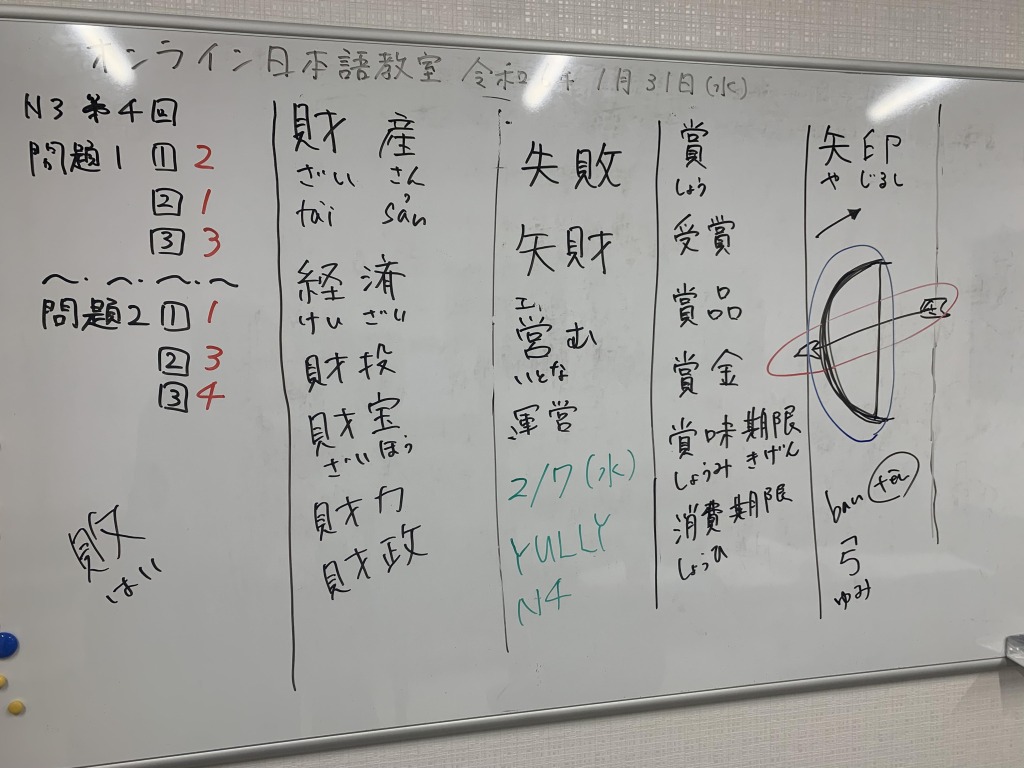 オンライン日本語教室 令和 年 1月31日(水)
N3 第4回
問題1 1 2
2 1
3 3
問題2 1 1
2 3
3 4
敗
はい
財産
ざい さん
tài sản
経済
けい ざい
財投
財宝
ざいほう
財力
財政
失敗
失財
営む
いとな
運営
2/7(水)
YULLY
N4
賞
しょう
受賞
賞品
賞金
賞味期限
しょうみ きげん
消費期限
しょうひ
矢印
や じるし
矢
ban tên
弓
ゆみ